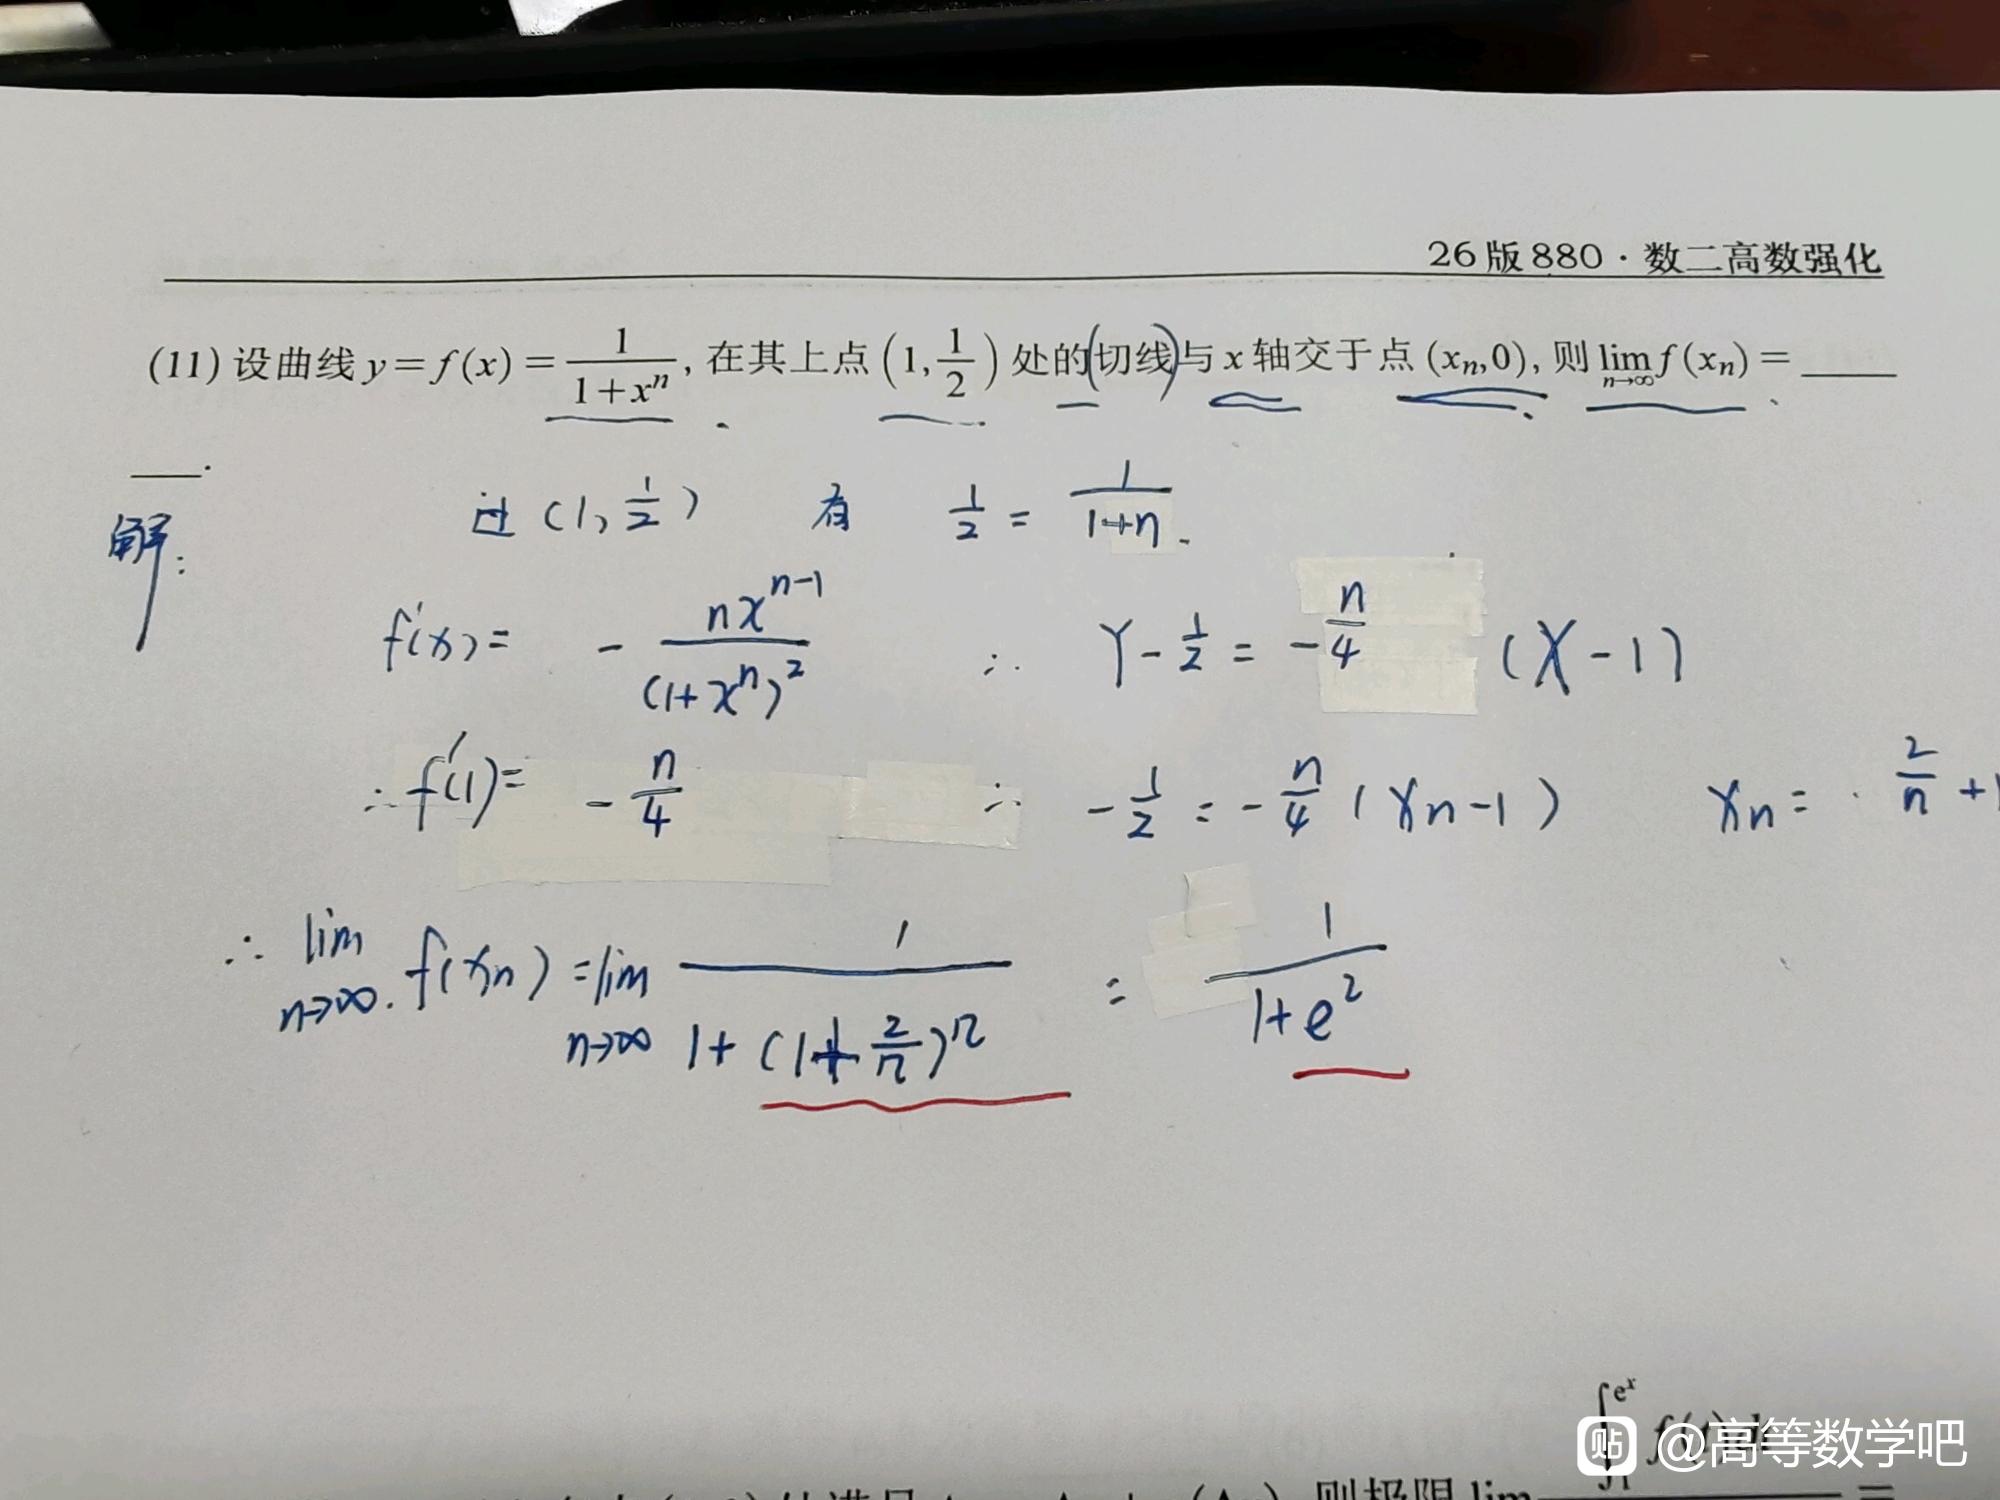 26版880·数二高数强化
(11) 设曲线 y=f(x)=\frac{1}{1+x^n}, 在其上点(1,\frac{1}{2})处的(切线)与x轴交于点(x_n,0), 则\lim_{n→∞}f(x_n)=____
____.
解: 过(1,\frac{1}{2}) 有 \frac{1}{2}=\frac{1}{1+n}.
f'(x)= -\frac{nx^{n-1}}{(1+x^n)^2} ∴ Y-\frac{1}{2}=-\frac{n}{4}(X-1)
∴ f'(1)= -\frac{n}{4} ∴ -\frac{1}{2}=-\frac{n}{4}(x_n-1) x_n=\frac{2}{n}+1
∴ \lim_{n→∞}f(x_n)=\lim_{n→∞}\frac{1}{1+(1+\frac{2}{n})^n}=\frac{1}{1+e^2}
\int_1^{e^x}f(t)d
贴 @高等数学吧
则极限 lim =